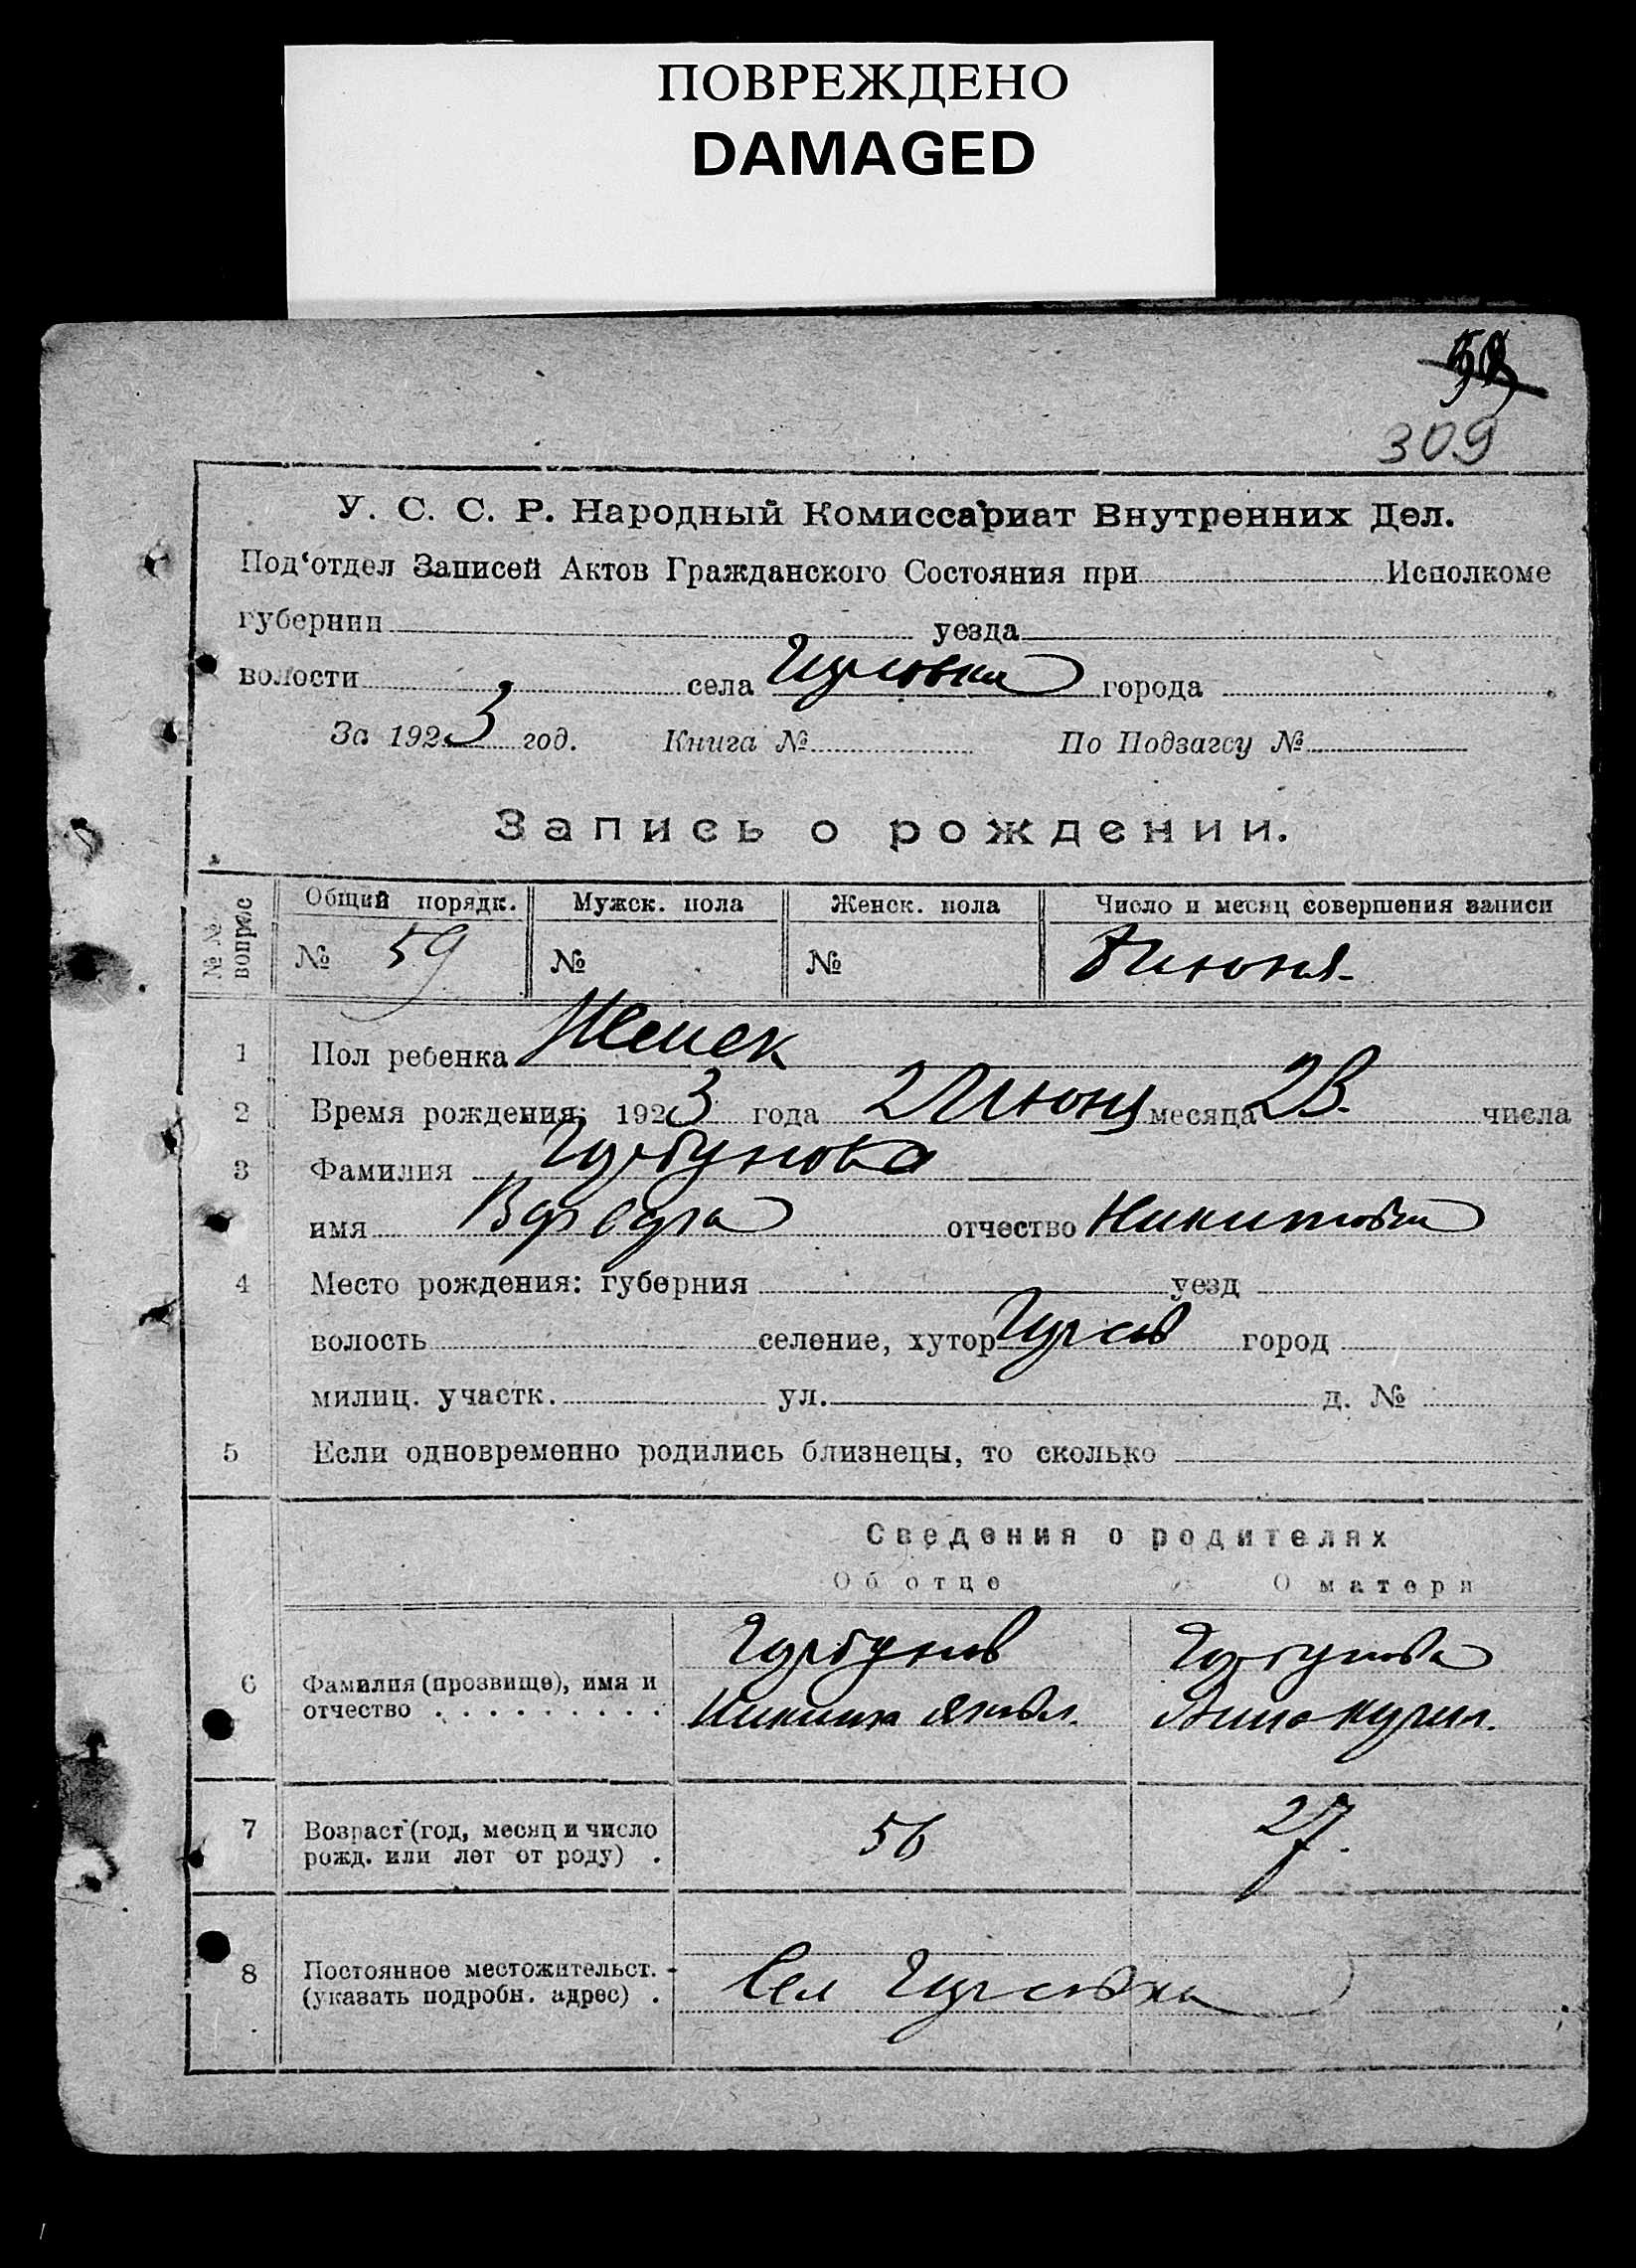 ПОВРЕЖДЕНО
DAMAGED
309
У. С. С. Р. Народный Комиссариат Внутренних Дел.
Под‘отдел Записей Актов Гражданского Состояния при Исполкоме
губернии уезда
волости села города
За 1923 год. Книга № По Подзагсу №
Запись о рождении.
№ № вопрос Общий порядк. Мужск. пола Женск. пола Число и месяц совершения записи
№ 59 № № Июня
1 Пол ребенка Женск
2 Время рождения: 1923 года 2 Июня месяца 23. числа
3 Фамилия Горбунова
имя Варвара отчество Никитовна
4 Место рождения: губерния уезд
волость селение, хутор город
милиц. участк. ул. д. №
5 Если одновременно родились близнецы, то сколько
Сведения о родителях
Об отце О матери
6 Фамилия (прозвище), имя и отчество . . . . . . . . .
Горбунов Горбунова
Никита Яковл. Анна
7 Возраст (год, месяц и число рожд. или лет от роду) . 56 27.
8 Постоянное местожительст. (указать подробн. адрес) . Сел